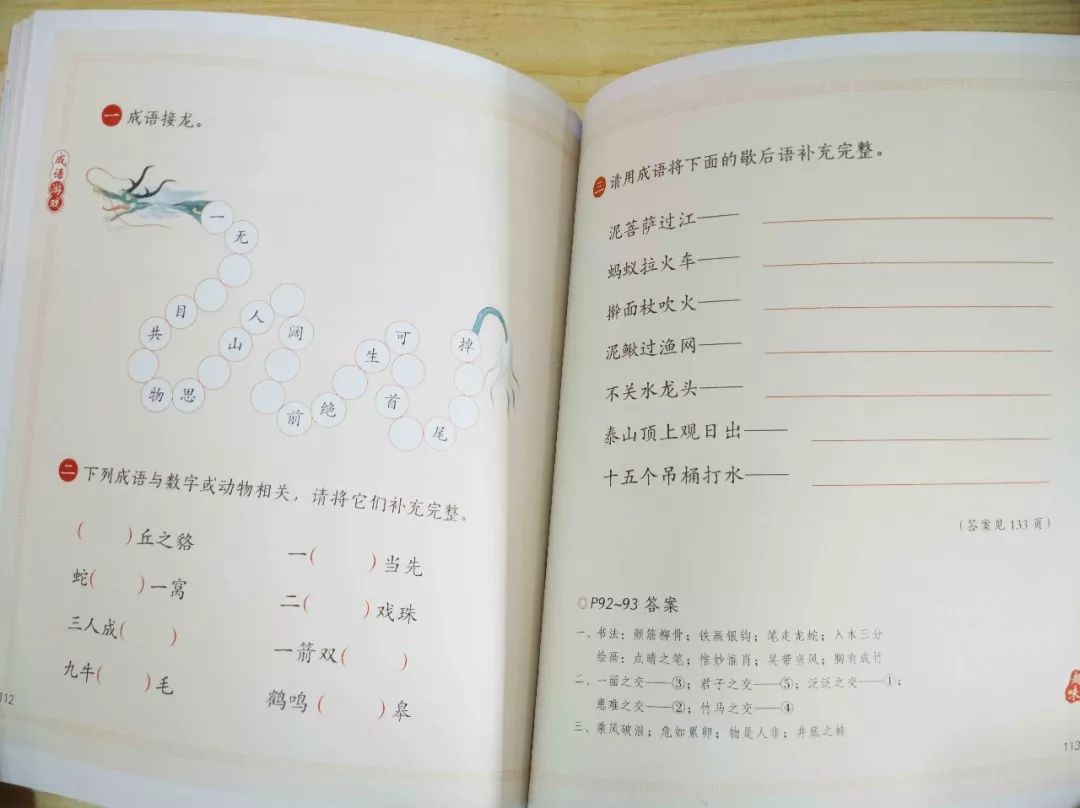 一 成语接龙。
成语游戏
一 无 目 共 物 思 山 人 阔 前 绝 生 可 首 尾 掉
二 下列成语与数字或动物相关，请将它们补充完整。
（ ）丘之貉
一（ ）当先
蛇（ ）一窝
二（ ）戏珠
三人成（ ）
一箭双（ ）
九牛（ ）毛
鹤鸣（ ）皋
112
三 请用成语将下面的歇后语补充完整。
泥菩萨过江——
蚂蚁拉火车——
擀面杖吹火——
泥鳅过渔网——
不关水龙头——
泰山顶上观日出——
十五个吊桶打水——
（答案见 133 页）
P92~93 答案
一、书法：颜筋柳骨；铁画银钩；笔走龙蛇；入木三分
绘画：点睛之笔；惟妙惟肖；吴带当风；胸有成竹
二、一面之交——③；君子之交——⑤；泛泛之交——①；
患难之交——②；竹马之交——④
三、乘风破浪；危如累卵；物是人非；井底之蛙
趣味
113